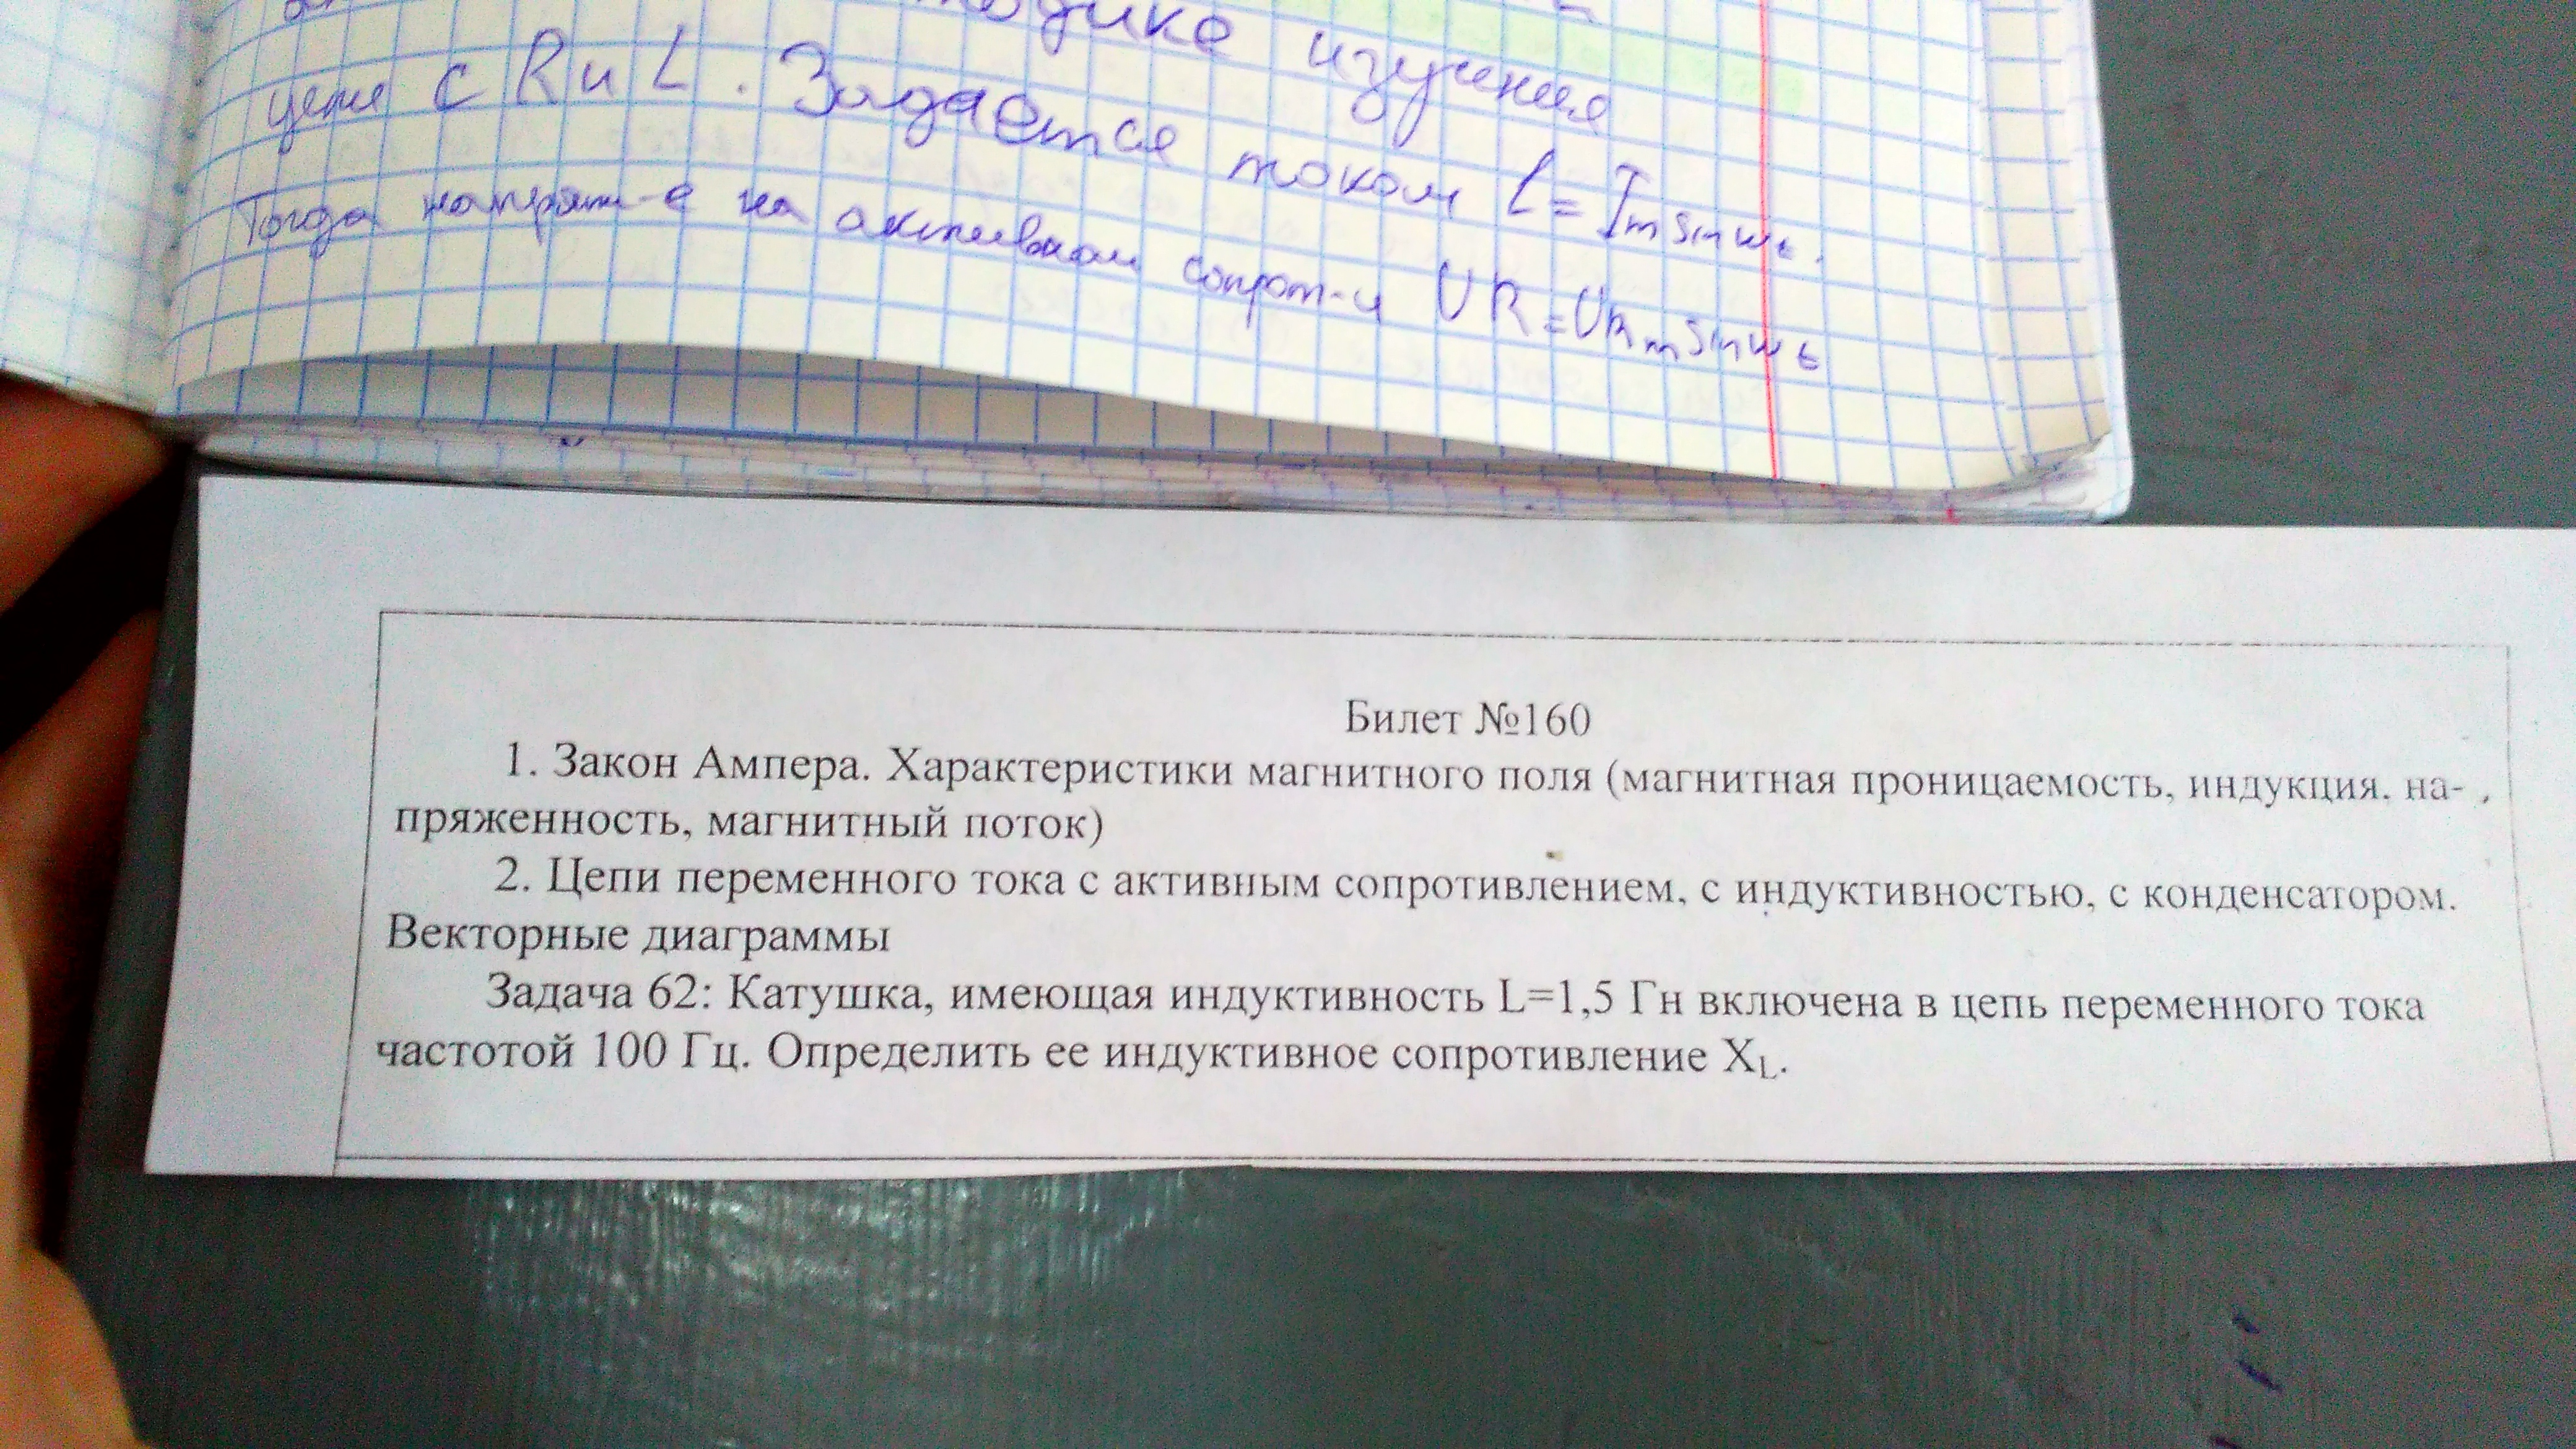 изучения
цепи с R и L. Задается током i = Im sin wt.
Тогда напряж-е на активном сопрот-и UR = URm sin wt
Билет №160
1. Закон Ампера. Характеристики магнитного поля (магнитная проницаемость, индукция, на-
пряженность, магнитный поток)
2. Цепи переменного тока с активным сопротивлением, с индуктивностью, с конденсатором.
Векторные диаграммы
Задача 62: Катушка, имеющая индуктивность L=1,5 Гн включена в цепь переменного тока
частотой 100 Гц. Определить ее индуктивное сопротивление XL.